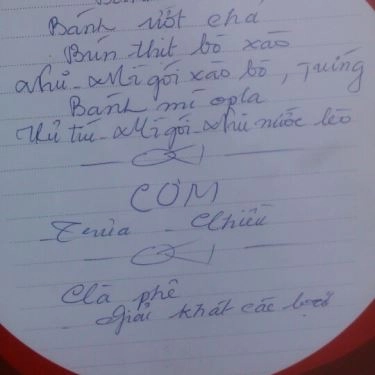 Bánh ướt chả
Bún thịt bò xào
Nhủ - Mì gói xào bò, Trứng
Bánh mì opla
Hủ tíu - Mì gói - Nhủ nước lèo
CƠM
Trưa - Chiều
Cà phê
Giải khát các loại